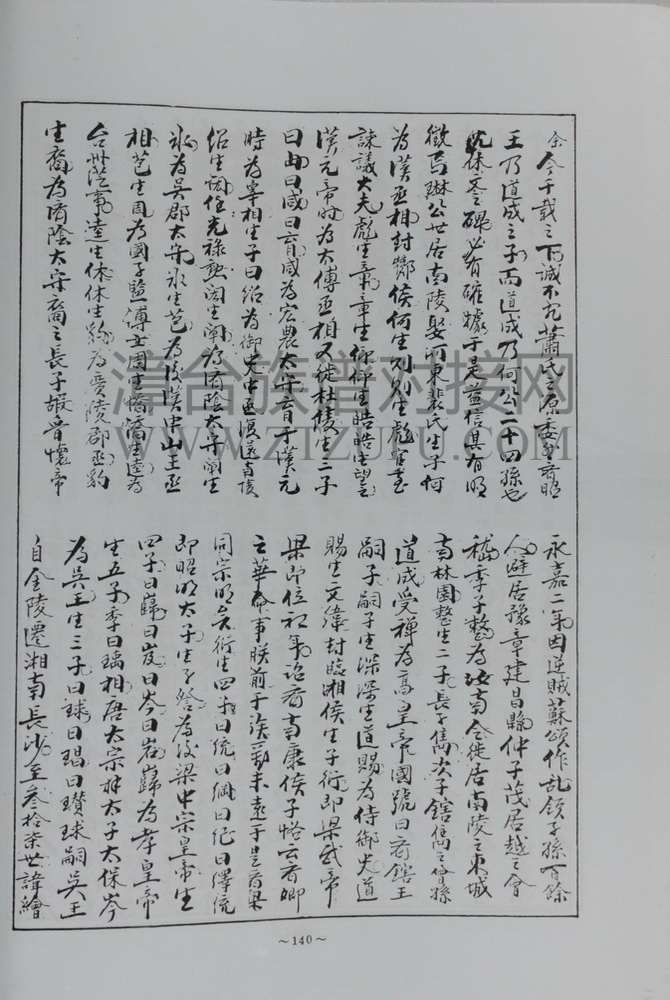 余今千載之下誠不知蕭氏之原委兮齊昭
王乃道成之子而道成乃何公二十四孫也
既休答碑必有確據于是益信其有明
徵焉琳公世居南陵娶河東裴氏生子何
為漢丞相封酇侯何生則則生彪官壹
諫議大夫彪生章章生仰仰生皓皓生望之
漢元帝時為太傅丞相又徙杜陵生三子
曰由曰咸曰育咸為宏農太守育于漢元
時為宰相生子曰紹為御史中丞復還南陵
紹生閎任光祿勳閎生闡為濟陰太守闡生
冰為吳郡太守冰生苞為後漢中山王丞
相苞生周為國子監博士周生憍憍生逵為
台州從事逵生休休生豹為廣陵郡丞豹
生裔為濟陰太守裔之長子嘏晉懷帝
永嘉二年因逆賊蘇頌作亂領子孫百餘
人避居豫章建昌縣仲子茂居越之會
稽季子整為汝南令徙居南陵之東城
南林園整生二子長子雋次子鎋雋之曾孫
道成受禪為高皇帝國號曰齊鎋王
嗣子嗣子生深深生道賜為侍御史道
賜生文偉封臨湘侯生子衍即梁武帝
梁即位初年詔齊南康侯子恪云齊卿
之華命事朕前于諸勳未遠于是齊梁
同宗明矣衍生四子曰統曰綱曰紀曰繹統
即昭明太子生子詧為後梁中宗皇帝生
四子曰巋曰岌曰岑曰巖巋為孝皇帝
生五子季曰瑀相唐太宗拜太子太保岑
為吳王生三子曰球曰琩曰瓚球嗣吳王
自金陵遷湘南長沙至叁拾柒世諱繪
～140～
溫台族譜對接网
WWW.ZTZUPU.COM